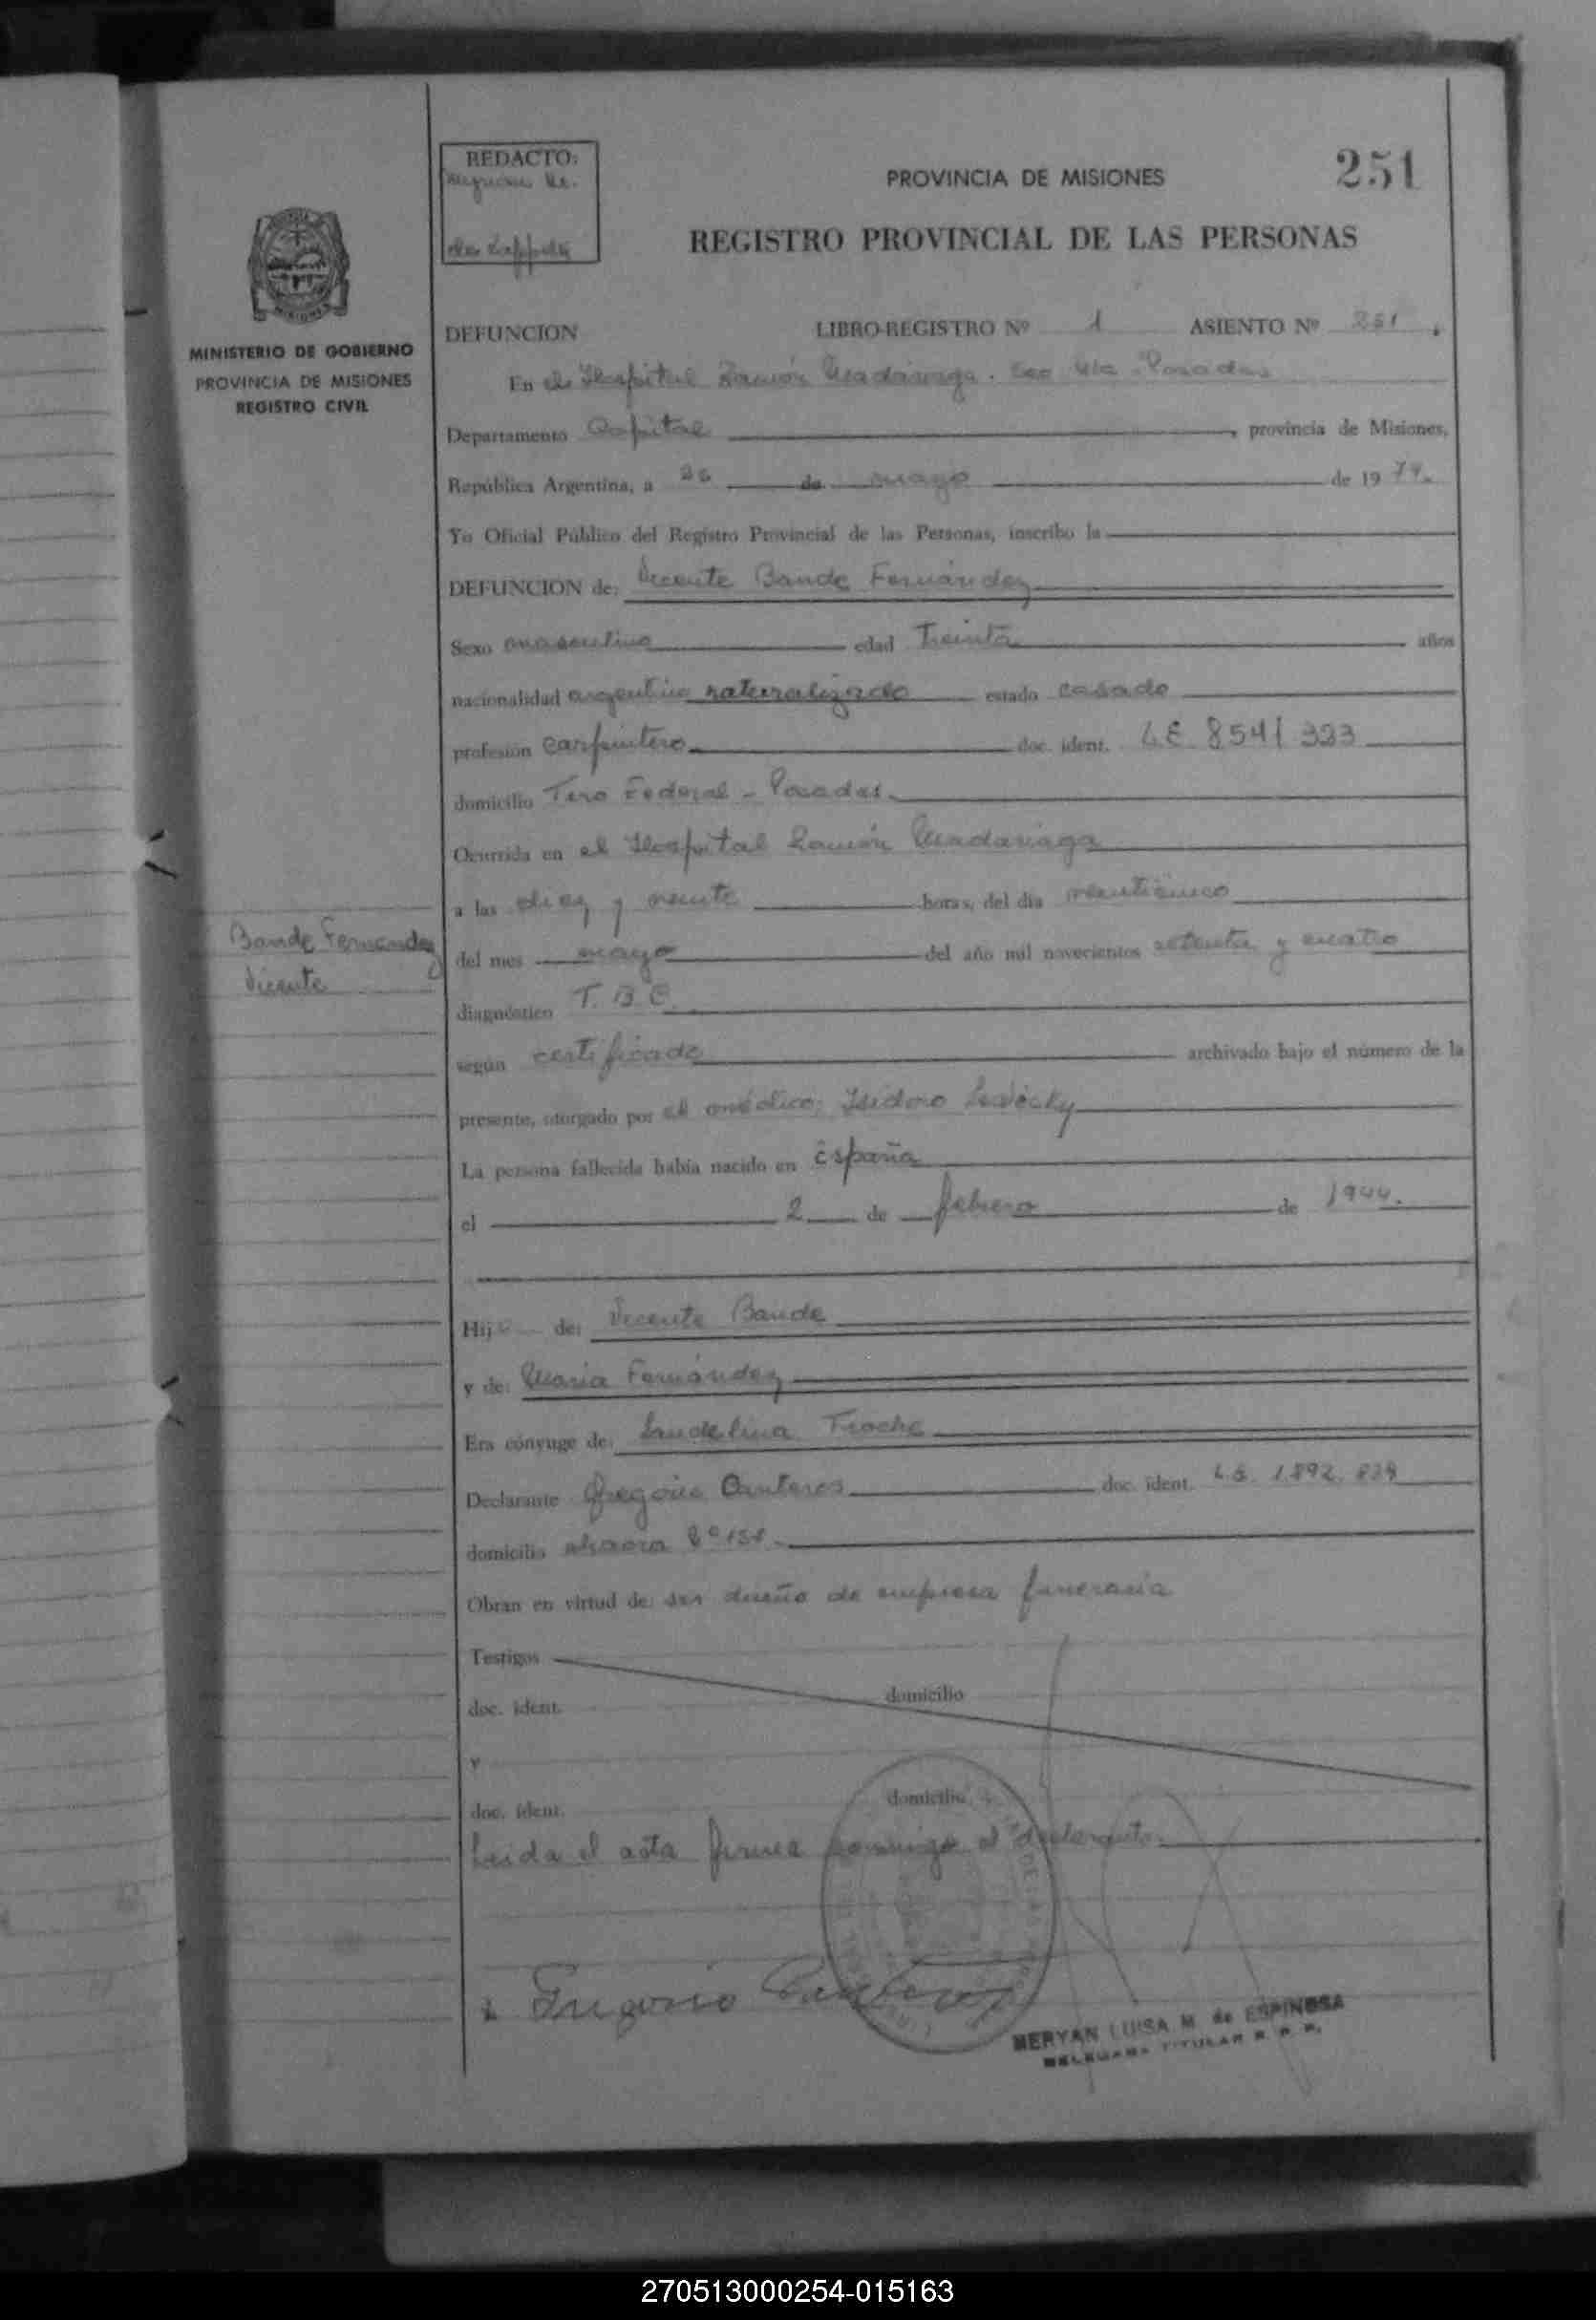 251
REDACTO:
PROVINCIA DE MISIONES
REGISTRO PROVINCIAL DE LAS PERSONAS
MINISTERIO DE GOBIERNO
PROVINCIA DE MISIONES
REGISTRO CIVIL
DEFUNCION LIBRO-REGISTRO Nº 1 ASIENTO Nº 251
En el Hospital Ramón Madariaga. Posadas
Departamento Capital, provincia de Misiones,
República Argentina, a 26 de mayo de 1974.
Yo Oficial Público del Registro Provincial de las Personas, inscribo la
DEFUNCION de: Vicente Bande Fernández
Sexo masculino edad Treinta años
nacionalidad argentino naturalizado estado casado
profesión carpintero doc. ident. L.E. 8541333
domicilio Tiro Federal - Posadas
Ocurrida en el Hospital Ramón Madariaga
a las diez y veinte horas, del día veinticinco
Bande Fernández
Vicente
del mes mayo del año mil novecientos setenta y cuatro
diagnóstico T.B.C.
según certificado archivado bajo el número de la
presente, otorgado por el médico: Isidoro
La persona fallecida había nacido en España
el 2 de febrero de 1944.
Hijo de: Vicente Bande
y de: María Fernández
Era cónyuge de: Laudelina Troche
Declarante Gregorio Canteros doc. ident. L.E. 1.892.829
domicilio chacra Nº 151
Obran en virtud de: ser dueño de empresa funeraria
Testigos
doc. ident. domicilio
y
doc. ident. domicilio
Leida el acta firma conmigo el declarante
Gregorio Canteros
MERYAN LUISA M. de ESPINOSA
DELEGADA TITULAR R. P. P.
270513000254-015163